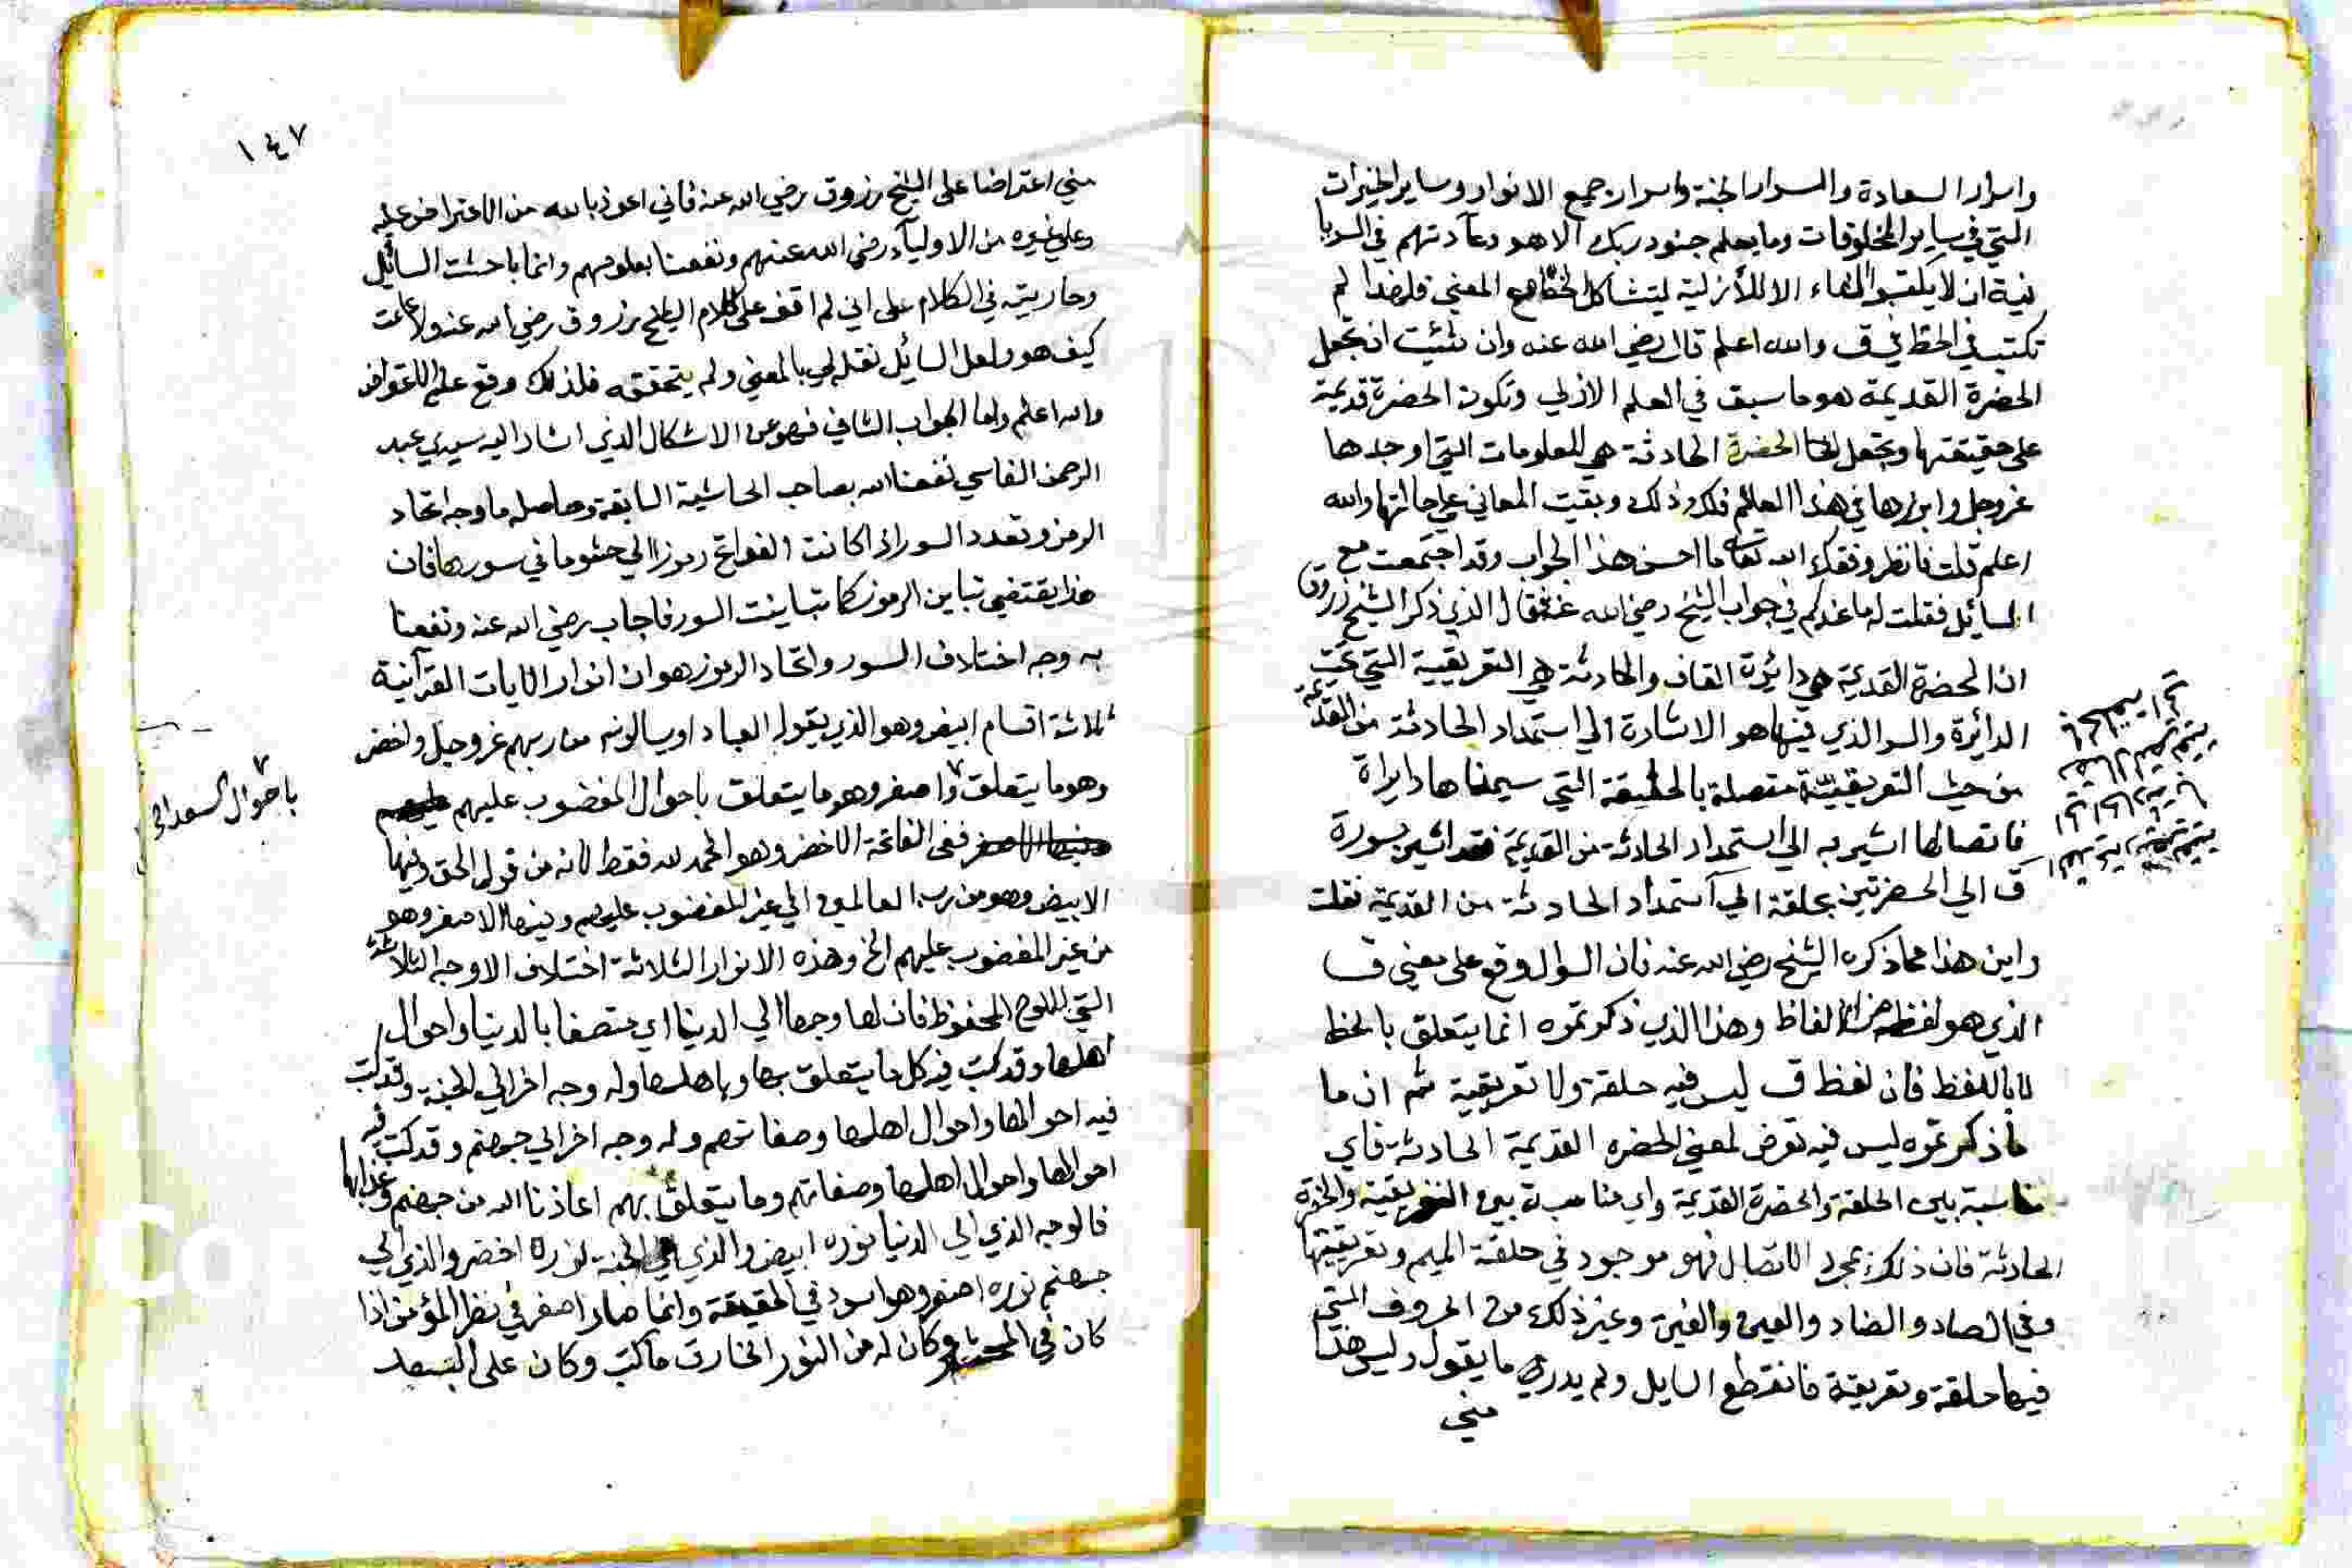 واسرار السعادة والسرار الجنة واسرار جميع الانوار وساير الخيرات
التي في ساير المخلوقات وما يعلم جنود ربك الا هو وعادتهم في السريا
نية ان لا يكتبوا الا للأزلية ليتشاكل مع المعنى فلهذا لم
تكتب في الخط في ق والله اعلم قال رضي الله عنه وان شئت ان تجعل
الحضرة القديمة هو ما سبق في العلم الازلي وتكون الحضرة قديمة
على حقيقتها وتجعل الحضرة الحادثة هي المعلومات التي اوجدها
عز وجل وابرزها في هذا العالم فلك ذلك وبقيت المعاني على حالتها والله
اعلم قلت فانظر وفقك الله تعالى ما احسن هذا الجواب وقد اجتمعت مع
السائل فقلت له ما عندكم في جواب الشيخ رضي الله عنه فقال الذي ذكر الشيخ زروق
ان الحضرة القديمة هي دائرة القاف والحادثة هي التعريقية التي تحت
الدائرة والسر الذي فيها هو الاشارة الى استمداد الحادثة من القديمة
من حيث التعريقية متصلة بالحلقة التي سميناها دايرة
فاتصالها اشير به الى استمداد الحادثة من القديمة فقد اشير بسورة
ق الى الحضرتين بحلقة الى استمداد الحادثة من القديمة فقلت
واين هذا مما ذكره الشيخ رضي الله عنه فان السوال وقع على معنى ق
الذي هو لفظ من الالفاظ وهذا الذي ذكرتموه انما يتعلق بالخط
لا باللفظ فان لفظ ق ليس فيه حلقة ولا تعريقية ثم ان ما
ما ذكرتموه ليس فيه تعرض لمعنى الحضره القديمة الحادثة فاي
مناسبة بين الحلقة والحضرة القديمة واي مناسبة بين التعريقية والحضرة
الحادثة فان ذلك بمجرد الاتصال فهو موجود في حلقة الميم وتعريقيتها
وفي الصاد والضاد والعين والغين وغير ذلك من الحروف التي
فيها حلقة وتعريقة فانقطع السايل ولم يدري ما يقول وليس هذا
مني
١٤٧
مني اعتراضا على الشيخ زروق رضي الله عنه فاني اعوذ بالله من الاعتراض عليه
وعلى غيره من الاولياء رضي الله عنهم ونفعنا بعلومهم وانما باحثت السائل
وجاريته في الكلام على اني لم اقف على كلام الشيخ زروق رضي الله عنه ولا علمت
كيف هو ولعل السائل نقله لي بالمعنى ولم يتحققه فلذلك وقع عليه الاعتراض
والله اعلم واما الجواب الثاني فهو عن الاشكال الذي اشار اليه سيدي عبد
الرحمن الفاسي نفعنا الله به صاحب الحاشية السابقة وحاصله ما وجه اتحاد
الرمز وتعدد السور اذا كانت الفواتح رموزا الى حشو ما في سورها فان
هذا يقتضي تباين الرموز كما تباينت السور فاجاب رضي الله عنه ونفعنا
به وجه اختلاف السور واتحاد الرموز هو ان انوار الايات القرآنية
ثلاثة اقسام ابيض وهو الذي يقوله العباد او يسالونه من ربهم عز وجل واخضر
وهو ما يتعلق واصفر وهو ما يتعلق باحوال المغضوب عليهم
ففي الفاتحة الاخضر وهو الحمد لله فقط لانه من قول الحق وفيها
الابيض وهو من رب العالمين الى غير المغضوب عليهم وفيها الاصفر وهو
من غير المغضوب عليهم الخ وهذه الانوار الثلاثة اختلاف الاوجه الثلاثة
التي للوح المحفوظ فان لها وجها الى الدنيا اي متصفا بالدنيا واحوال
اهلها وقد كتب فيه كل ما يتعلق بها وباهلها وله وجه اخر الى الجنة وقد كتب
فيه احوالها واحوال اهلها وصفاتهم وله وجه اخر الى جهنم وقد كتب فيه
احوالها واحوال اهلها وصفاتهم وما يتعلق بهم اعاذنا الله من جهنم وعذابها
فالوجه الذي الى الدنيا نوره ابيض والذي الى الجنة نوره اخضر والذي الى
جهنم نوره اصفر وهو اسود في الحقيقة وانما صار اصفر في نظر المؤمن اذا
كان في وكان له من النور الخارق ما كتب وكان على البعد
باحوال السعداء